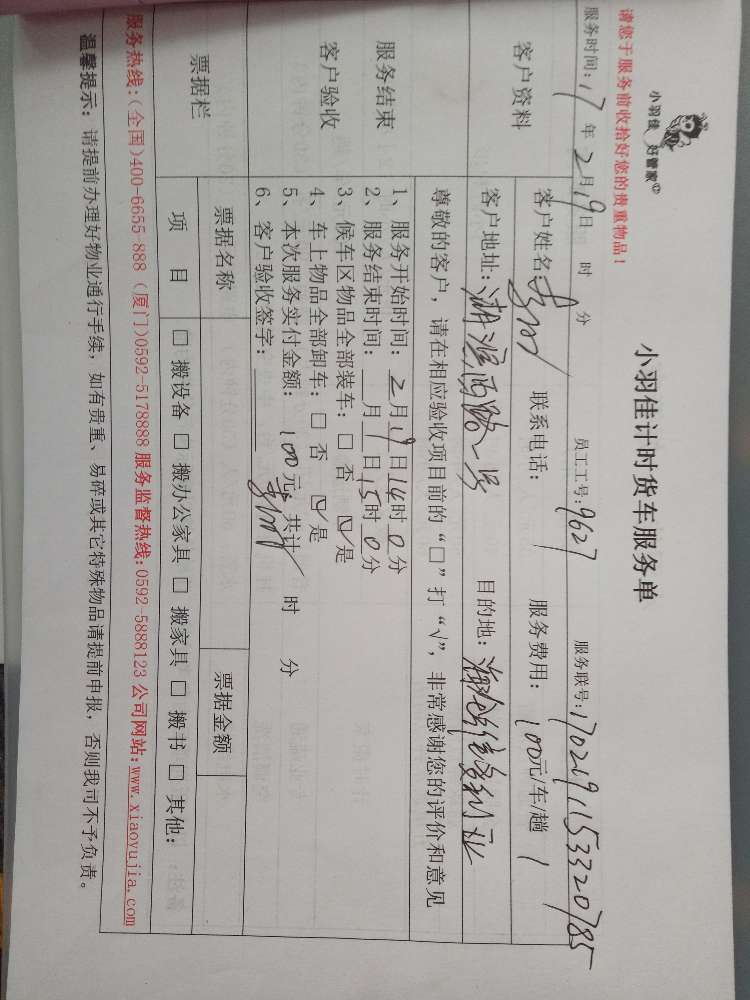 小羽佳 好管家
小羽佳计时货车服务单
请您于服务前收拾好您的贵重物品！
服务时间：17年2月19日 时 分 员工工号：9627 服务联号：1702191153320785
客户资料
客户姓名： 联系电话： 服务费用：100元/车/趟
客户地址：湖滨西路一号 目的地：
尊敬的客户，请在相应验收项目前的“□”打“√”，非常感谢您的评价和意见
服务结束
客户验收
1、服务开始时间：2月19日14时0分
2、服务结束时间： 月 日15时0分
3、候车区物品全部装车：□ 否 ☑是
4、车上物品全部卸车：□ 否 ☑是
5、本次服务实付金额：100元，共计 时 分
6、客户验收签字：
票据栏
票据名称 票据金额
项 目 □ 搬设备 □ 搬办公家具 □ 搬家具 □ 搬书 □ 其他：
服务热线：(全国)400-6655 888 (厦门)0592-5178888 服务监督热线：0592-5888123 公司网站：www.xiaoyujia.com
温馨提示：请提前办理好物业通行手续，如有贵重、易碎或其它特殊物品请提前申报，否则我司不予负责。